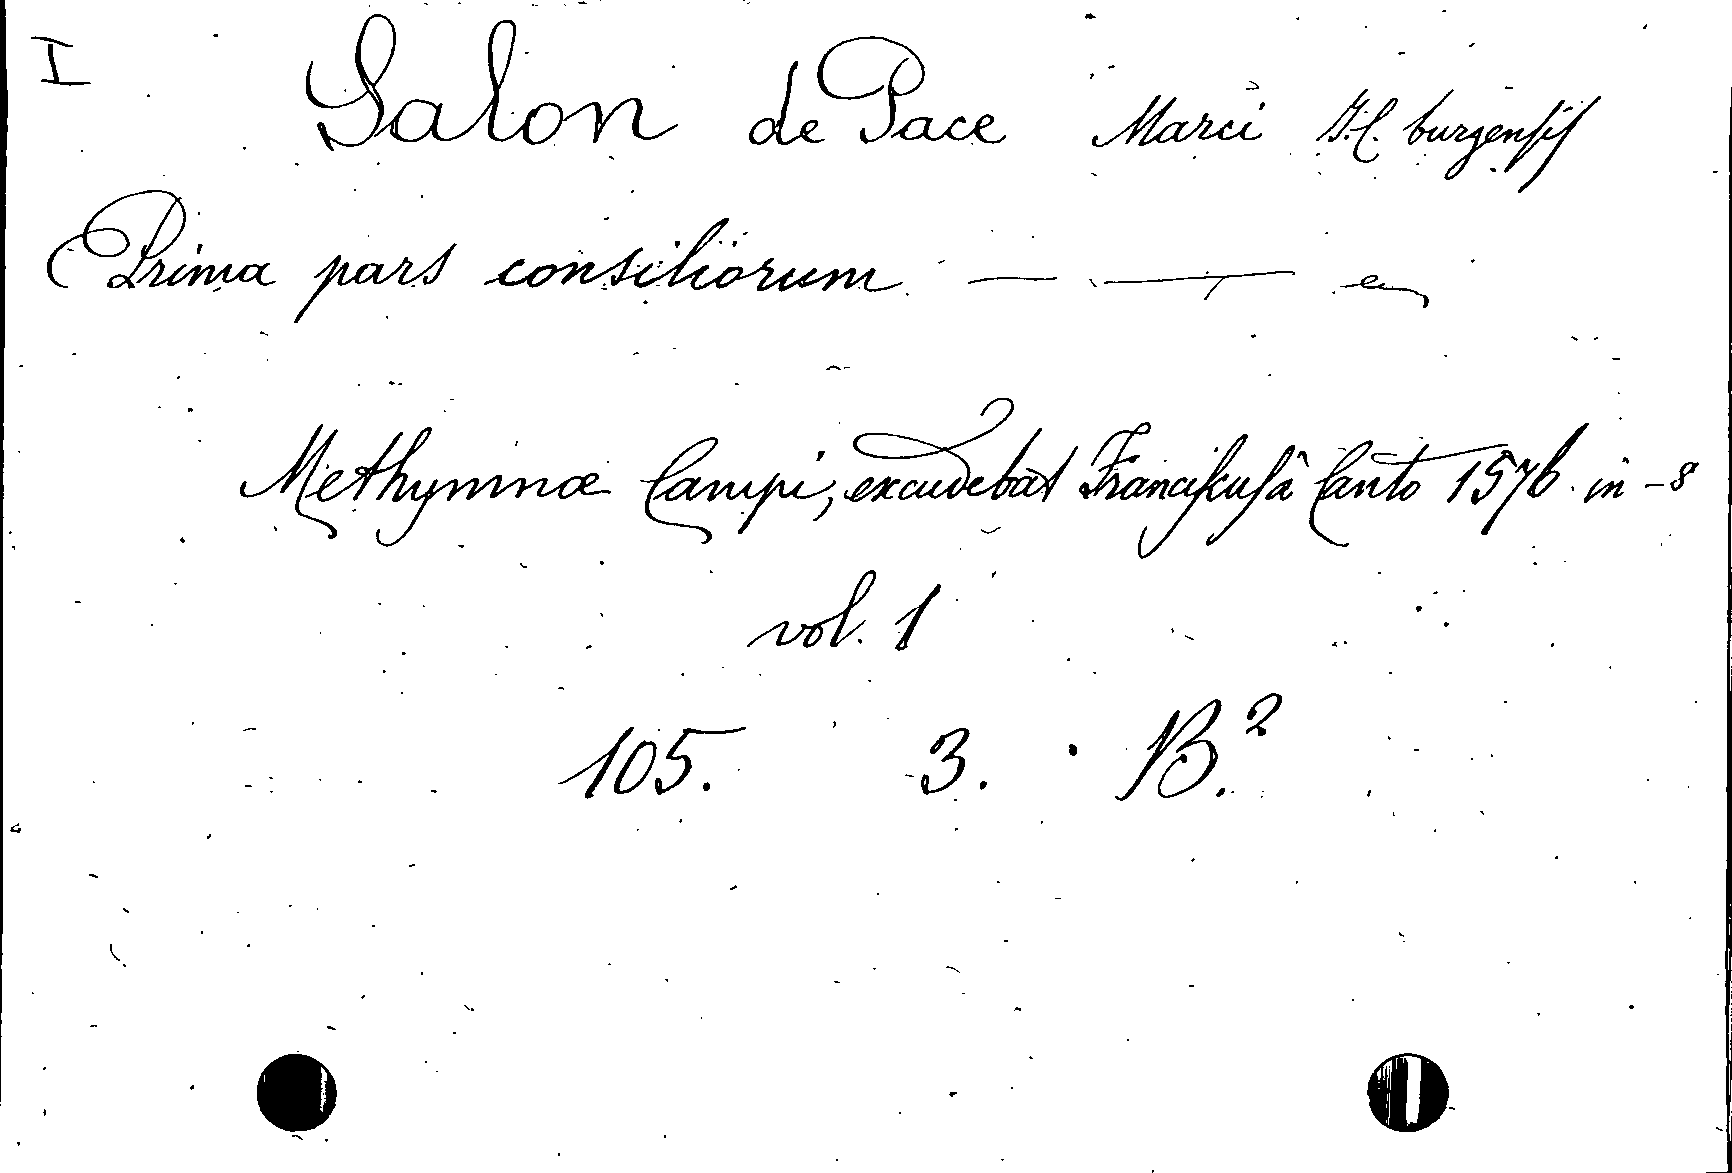 I Salon de Pace Marci J.C. burgensis
Prima pars consiliorum — —
Methymnæ Campi, excudebat Franciscus à Canto 1576 in-8
vol. 1
105. 3. B.²